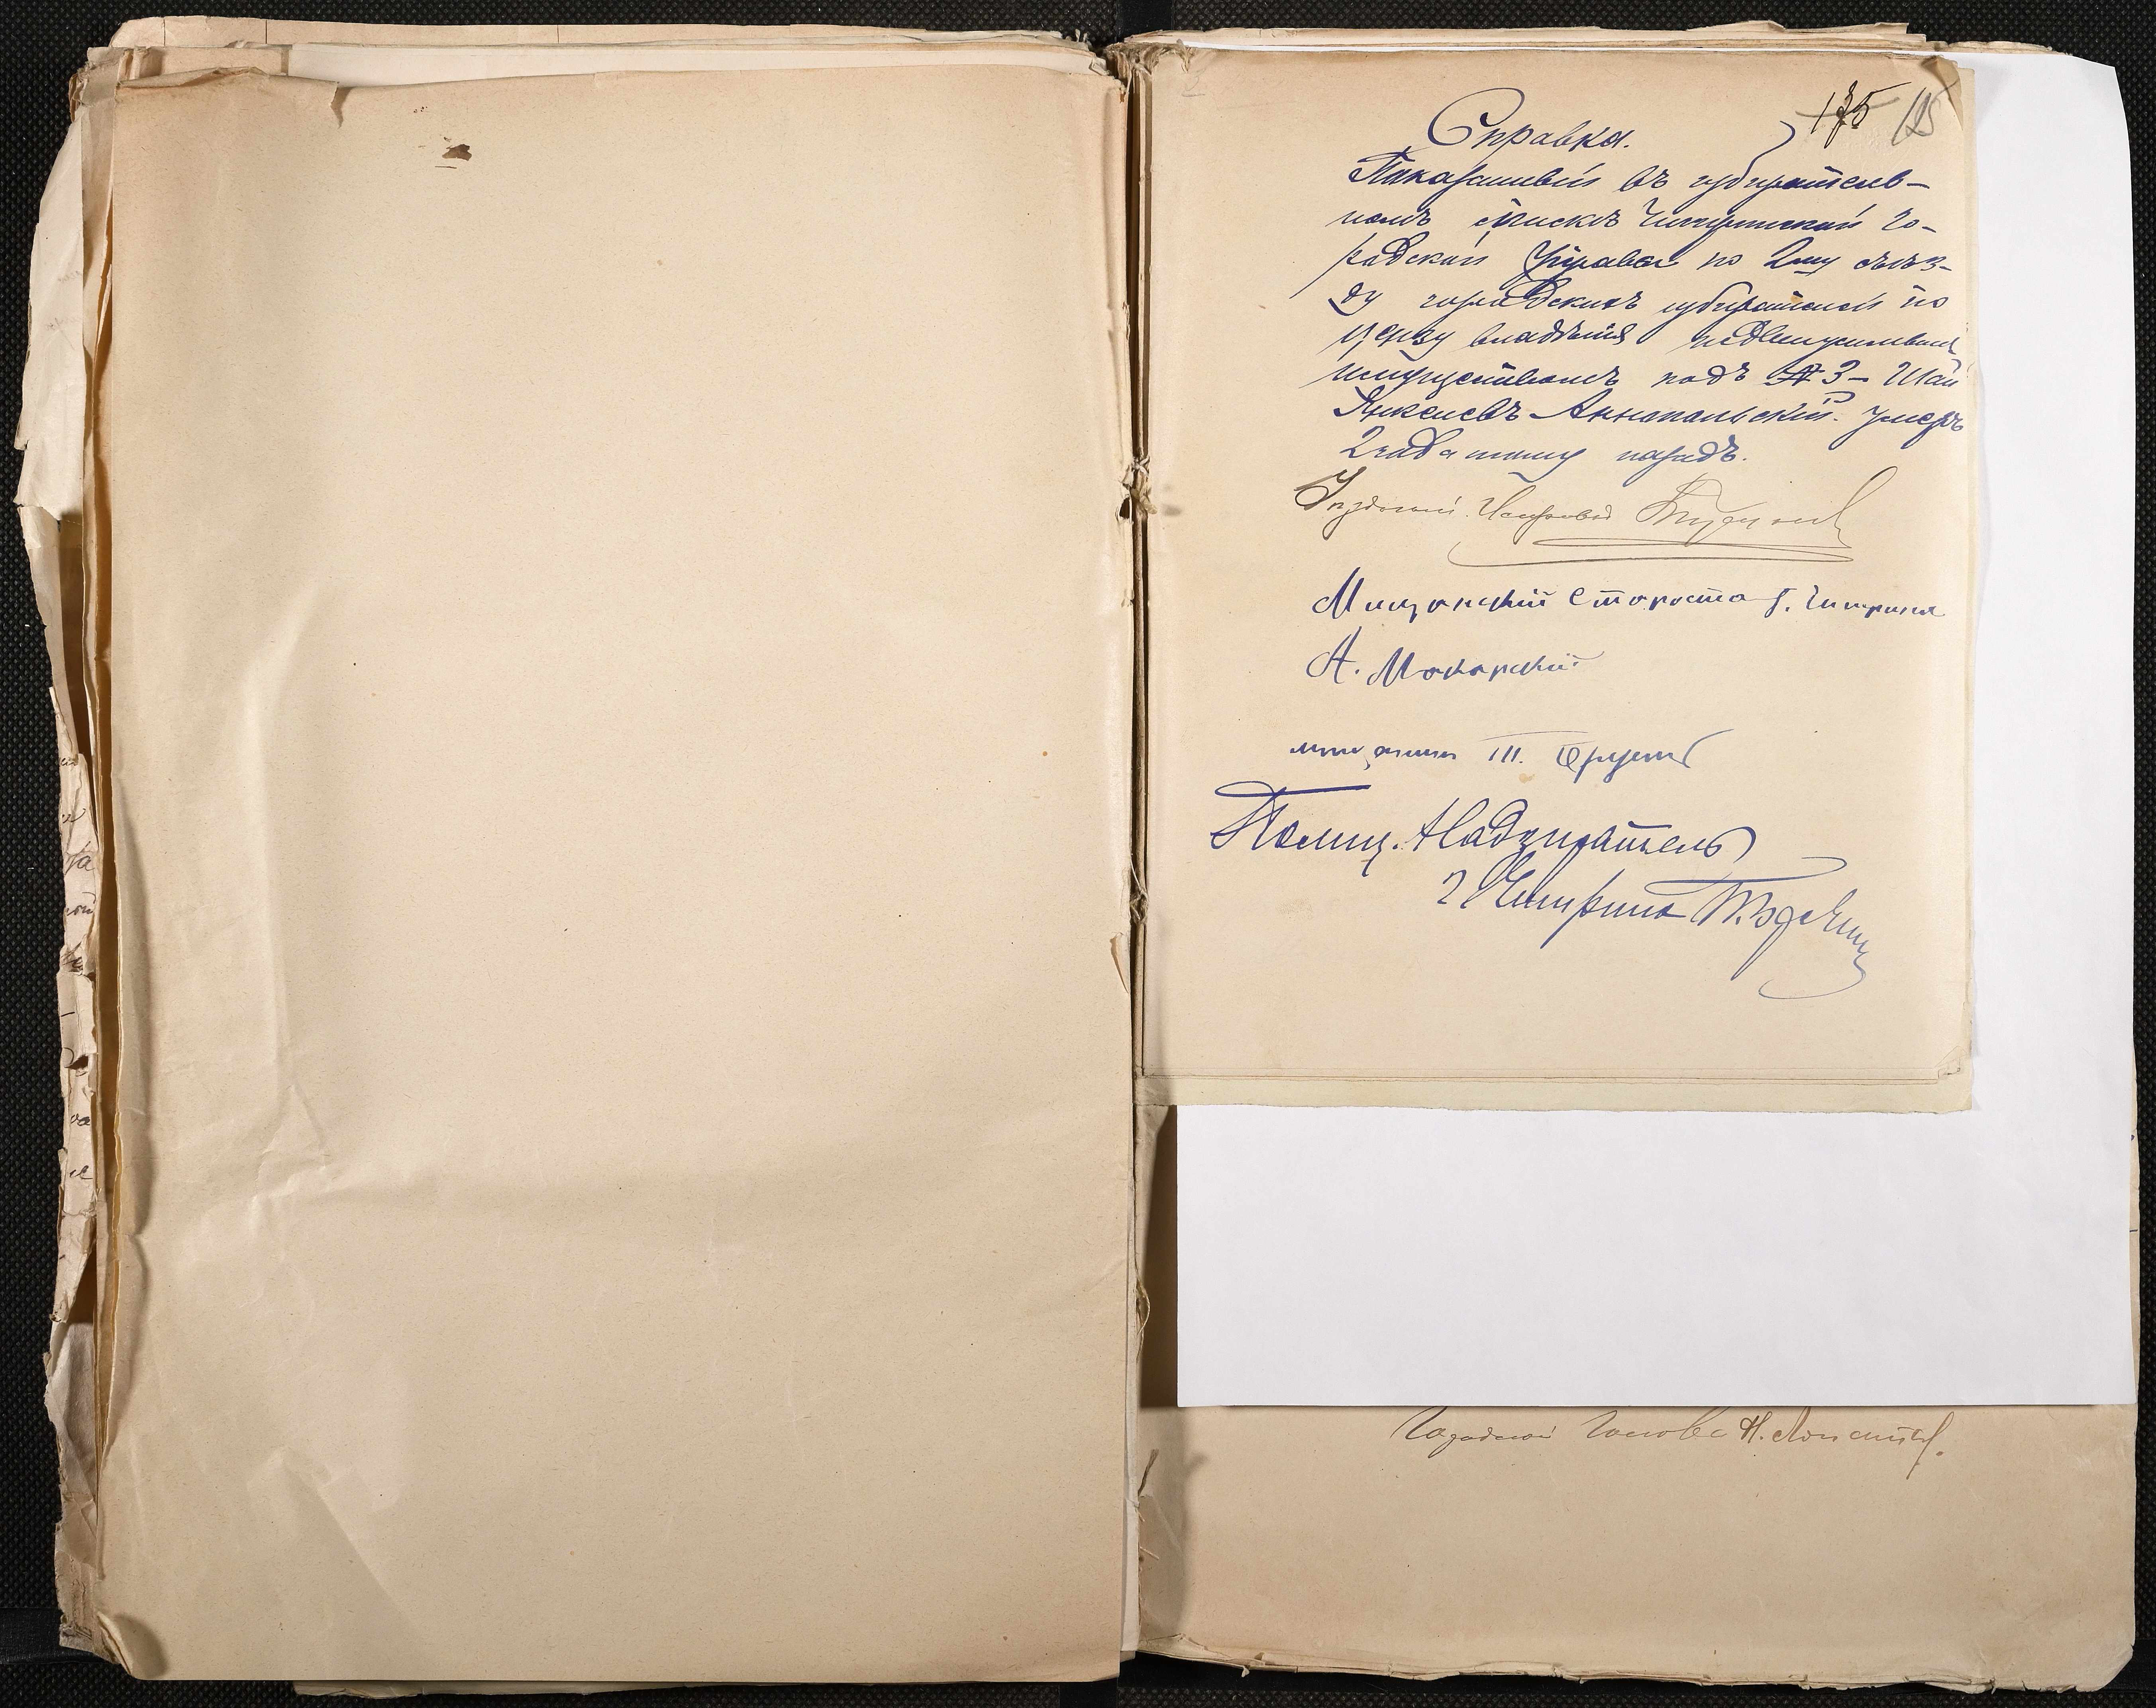 175 125
Справка.
Показанный въ избиратель-
номъ списке Чигиринской Го-
родской Управы по 2му съѣз-
ду городскихъ избирателей по
цензу владѣнія недвижимымъ
имуществомъ подъ № 3 – Шая
Аннопольскій. умеръ
2 года тому назадъ.
Мищанский Староста г. Чигирина
А. Макарский
мещанин Ш.
Полиц. Надзиратель
г Чигирина
Городской Голова Н.